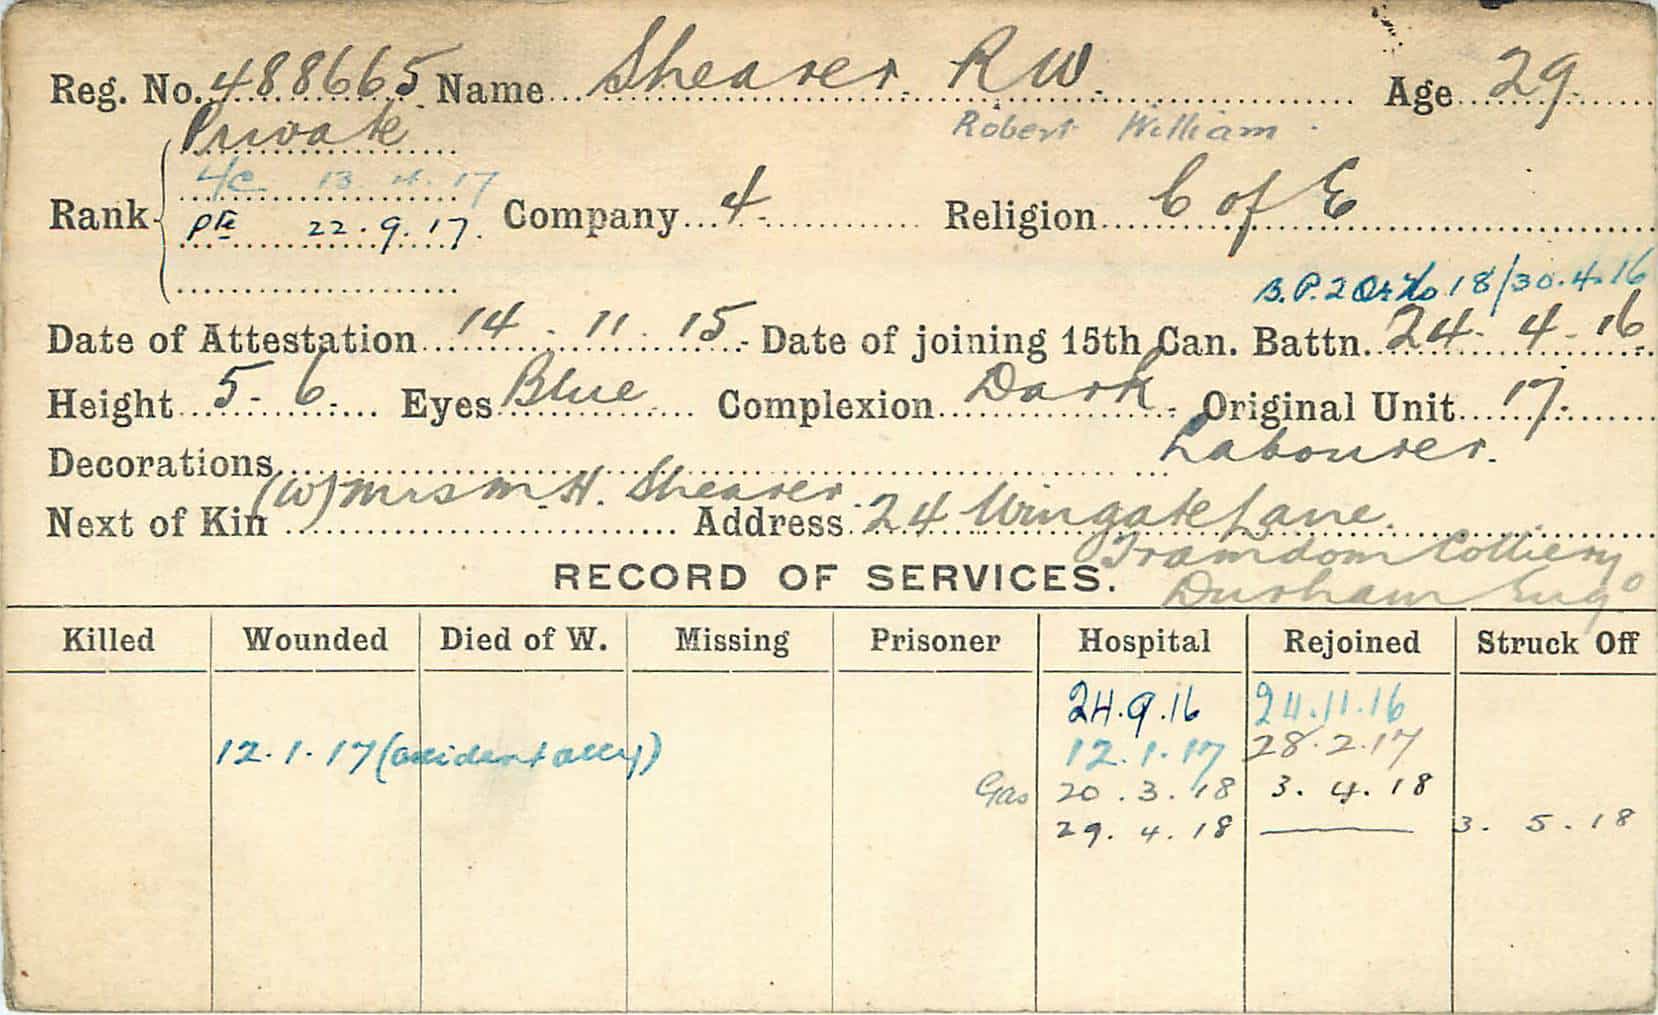 Reg. No. 488665 Name Shearer R W. Age 29
Private Robert William
L/C 13.4.17
Rank Pte 22.9.17. Company 4 Religion C of E
B.P. 2 Or No 18/30.4.16
Date of Attestation 14.11.15 Date of joining 15th Can. Battn. 24.4.16
Height 5-6 Eyes Blue Complexion Dark Original Unit 17
Decorations Labourer.
Next of Kin (W) Mrs M. H. Shearer Address 24 Wingate Lane.
Tramdom Colliery
RECORD OF SERVICES. Durham Eng
Killed Wounded Died of W. Missing Prisoner Hospital Rejoined Struck Off
24.9.16 24.11.16
12.1.17 (accidentally) 12.1.17 28.2.17
Gas 20.3.18 3.4.18
29.4.18 — 3.5.18